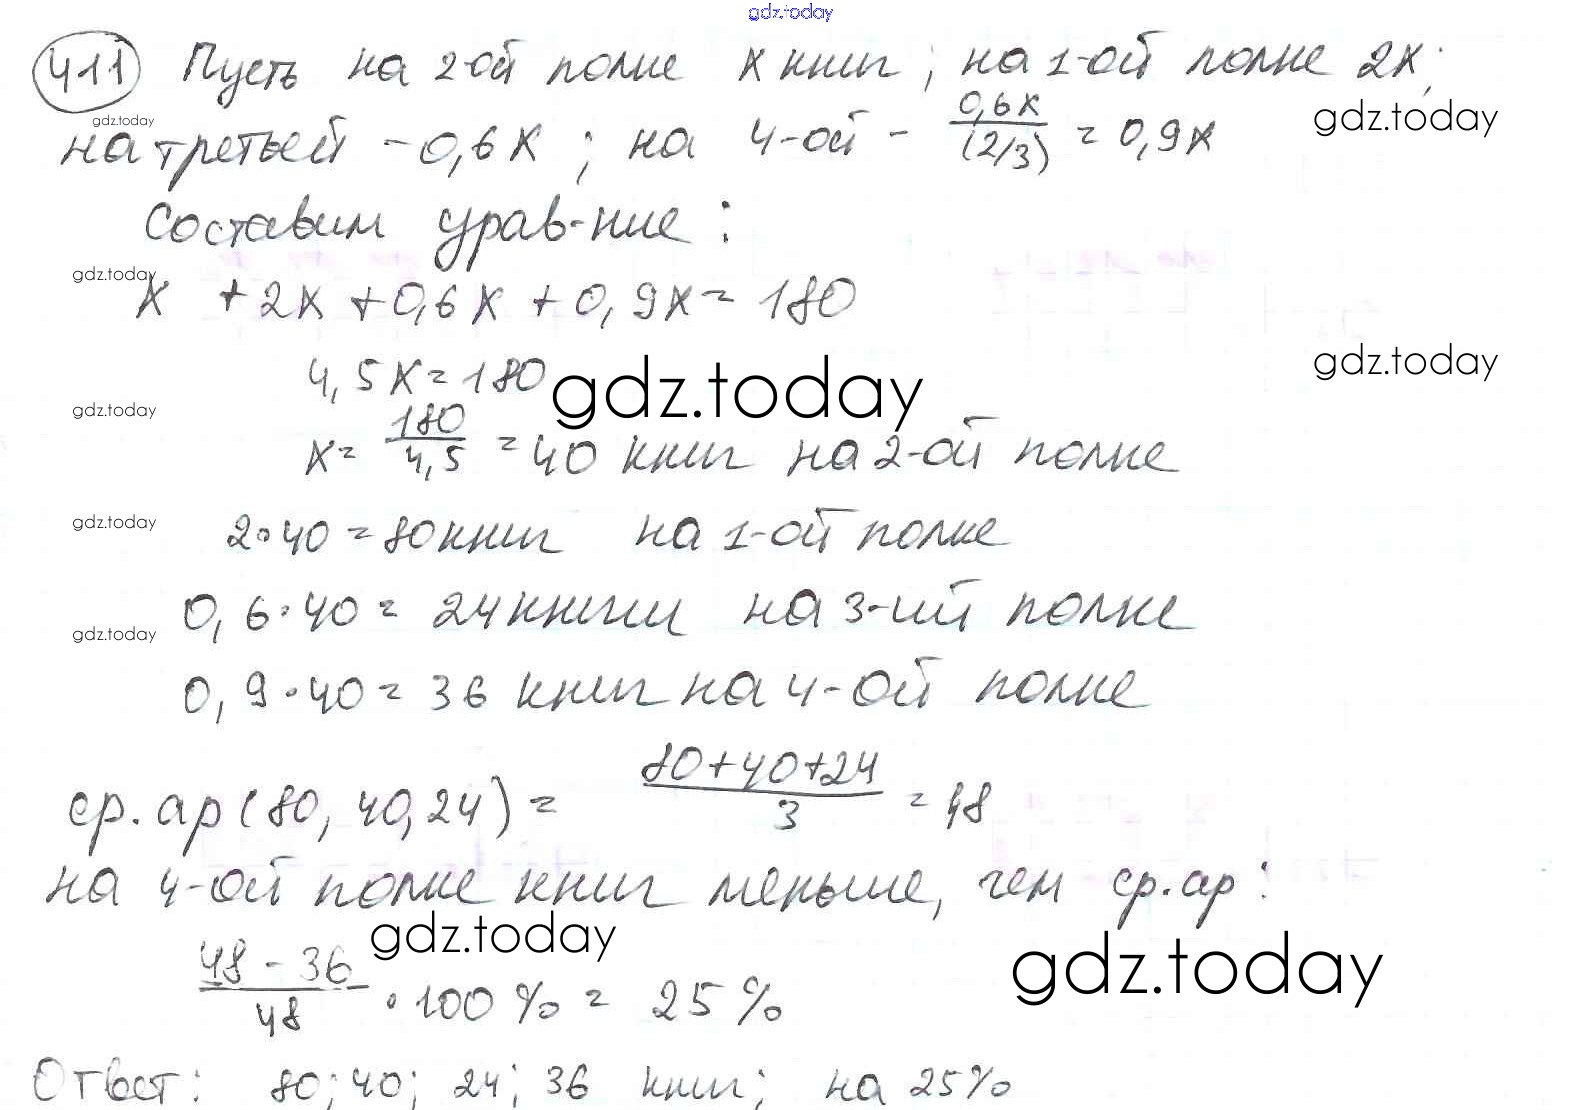 gdz.today
411 Пусть на 2-ой полке x книг; на 1-ой полке 2x;
gdz.today
gdz.today
на третьей - 0,6x; на 4-ой - 0,6x/(2/3) = 0,9x
Составим урав-ние:
gdz.today
x + 2x + 0,6x + 0,9x = 180
gdz.today
4,5x = 180
gdz.today
gdz.today
x = 180/4,5 = 40 книг на 2-ой полке
gdz.today
2·40 = 80 книг на 1-ой полке
0,6·40 = 24 книги на 3-ий полке
gdz.today
0,9·40 = 36 книг на 4-ой полке
ср.ар(80, 40, 24) = (80+40+24)/3 = 48
на 4-ой полке книг меньше, чем ср.ар:
gdz.today
gdz.today
(48 - 36)/48 · 100% = 25%
Ответ: 80; 40; 24; 36 книг; на 25%